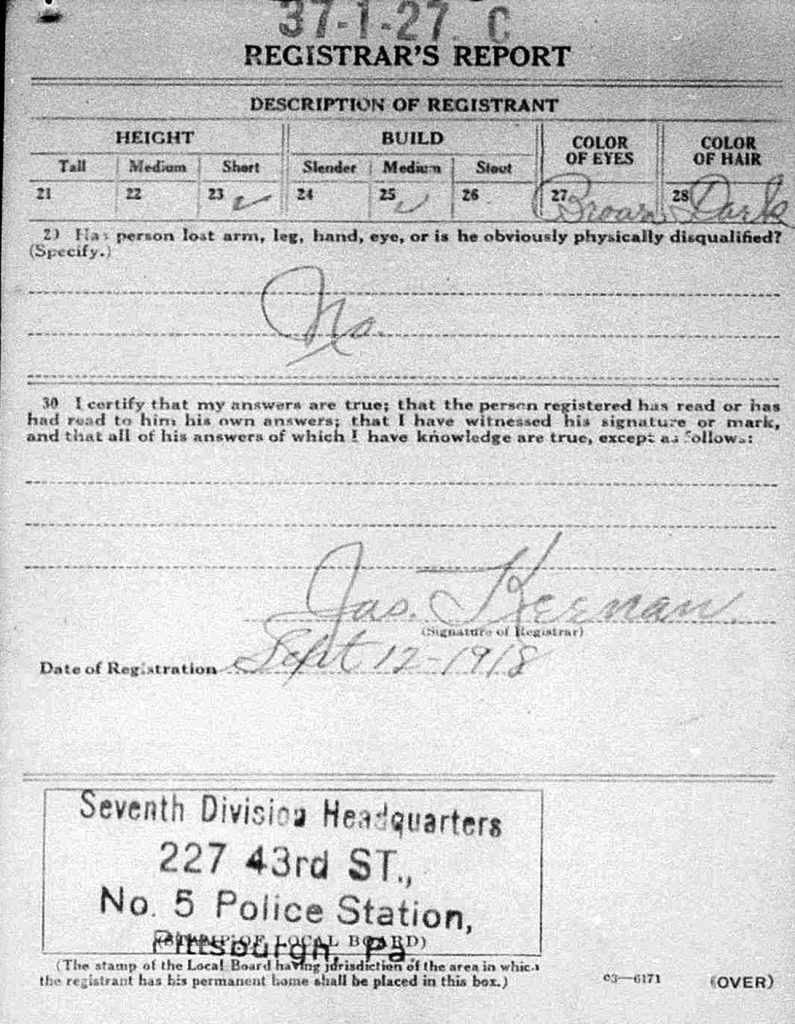 37-1-27 C
REGISTRAR'S REPORT
DESCRIPTION OF REGISTRANT
HEIGHT BUILD COLOR OF EYES COLOR OF HAIR
Tall Medium Short Slender Medium Stout
21 22 23 ✓ 24 25 ✓ 26 27 Brown 28 Dark
29 Has person lost arm, leg, hand, eye, or is he obviously physically disqualified?
(Specify.)
No.
30 I certify that my answers are true; that the person registered has read or has
had read to him his own answers; that I have witnessed his signature or mark,
and that all of his answers of which I have knowledge are true, except as follows:
Jas. Keenan
(Signature of Registrar)
Date of Registration Sept 12-1918
Seventh Division Headquarters
227 43rd ST.,
No. 5 Police Station,
Pittsburgh, Pa.
(STAMP OF LOCAL BOARD)
(The stamp of the Local Board having jurisdiction of the area in which
the registrant has his permanent home shall be placed in this box.)
03—6171 (OVER)